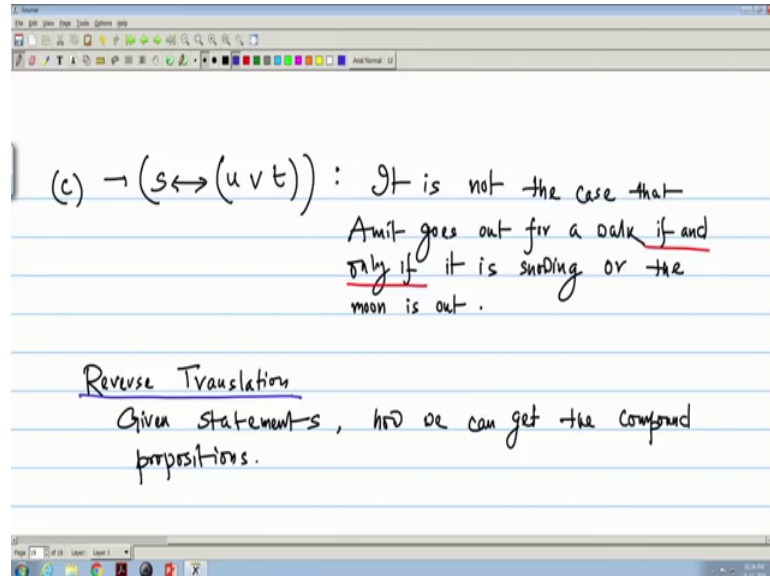 Journal
File Edit View Page Tools Options Help
Arial Normal 12
(c) ¬(s↔(u∨t)) : It is not the case that
Amit goes out for a walk if and
only if it is snowing or the
moon is out.
Reverse Translation
Given statements, how we can get the compound
propositions.
Page 19 of 19 Layer: Layer 1